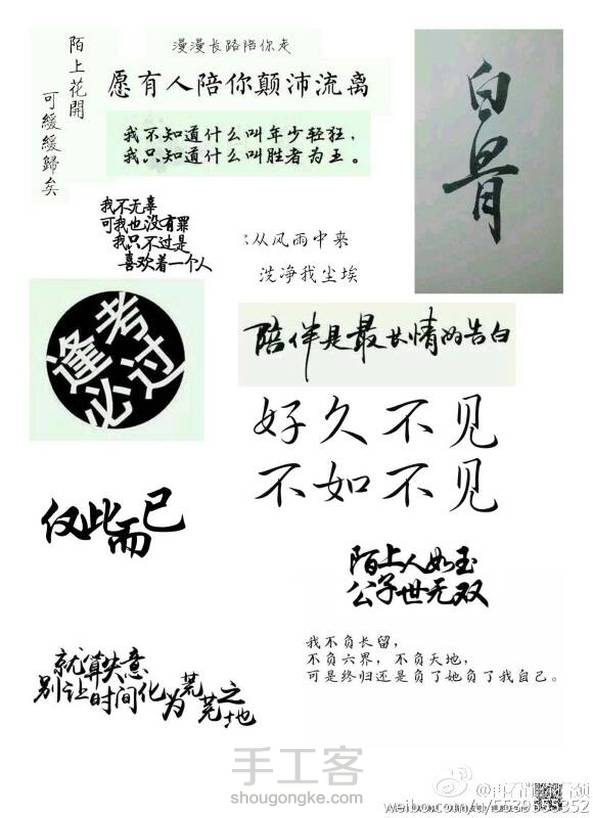 陌上花開
可緩緩歸矣
漫漫长路陪你走
愿有人陪你颠沛流离
我不知道什么叫年少轻狂，
我只知道什么叫胜者为王。
白骨
我不无辜
可我也没有罪
我只不过是
喜欢着一个人
:从风雨中来
洗净我尘埃
逢考
必过
陪伴是最长情的告白
好久不见
不如不见
仅此而已
陌上人如玉
公子世无双
我不负长留，
不负六界，不负天地，
可是终归还是负了她负了我自己。
就算失意
别让时间化为荒芜之地
手工客
shougongke.com